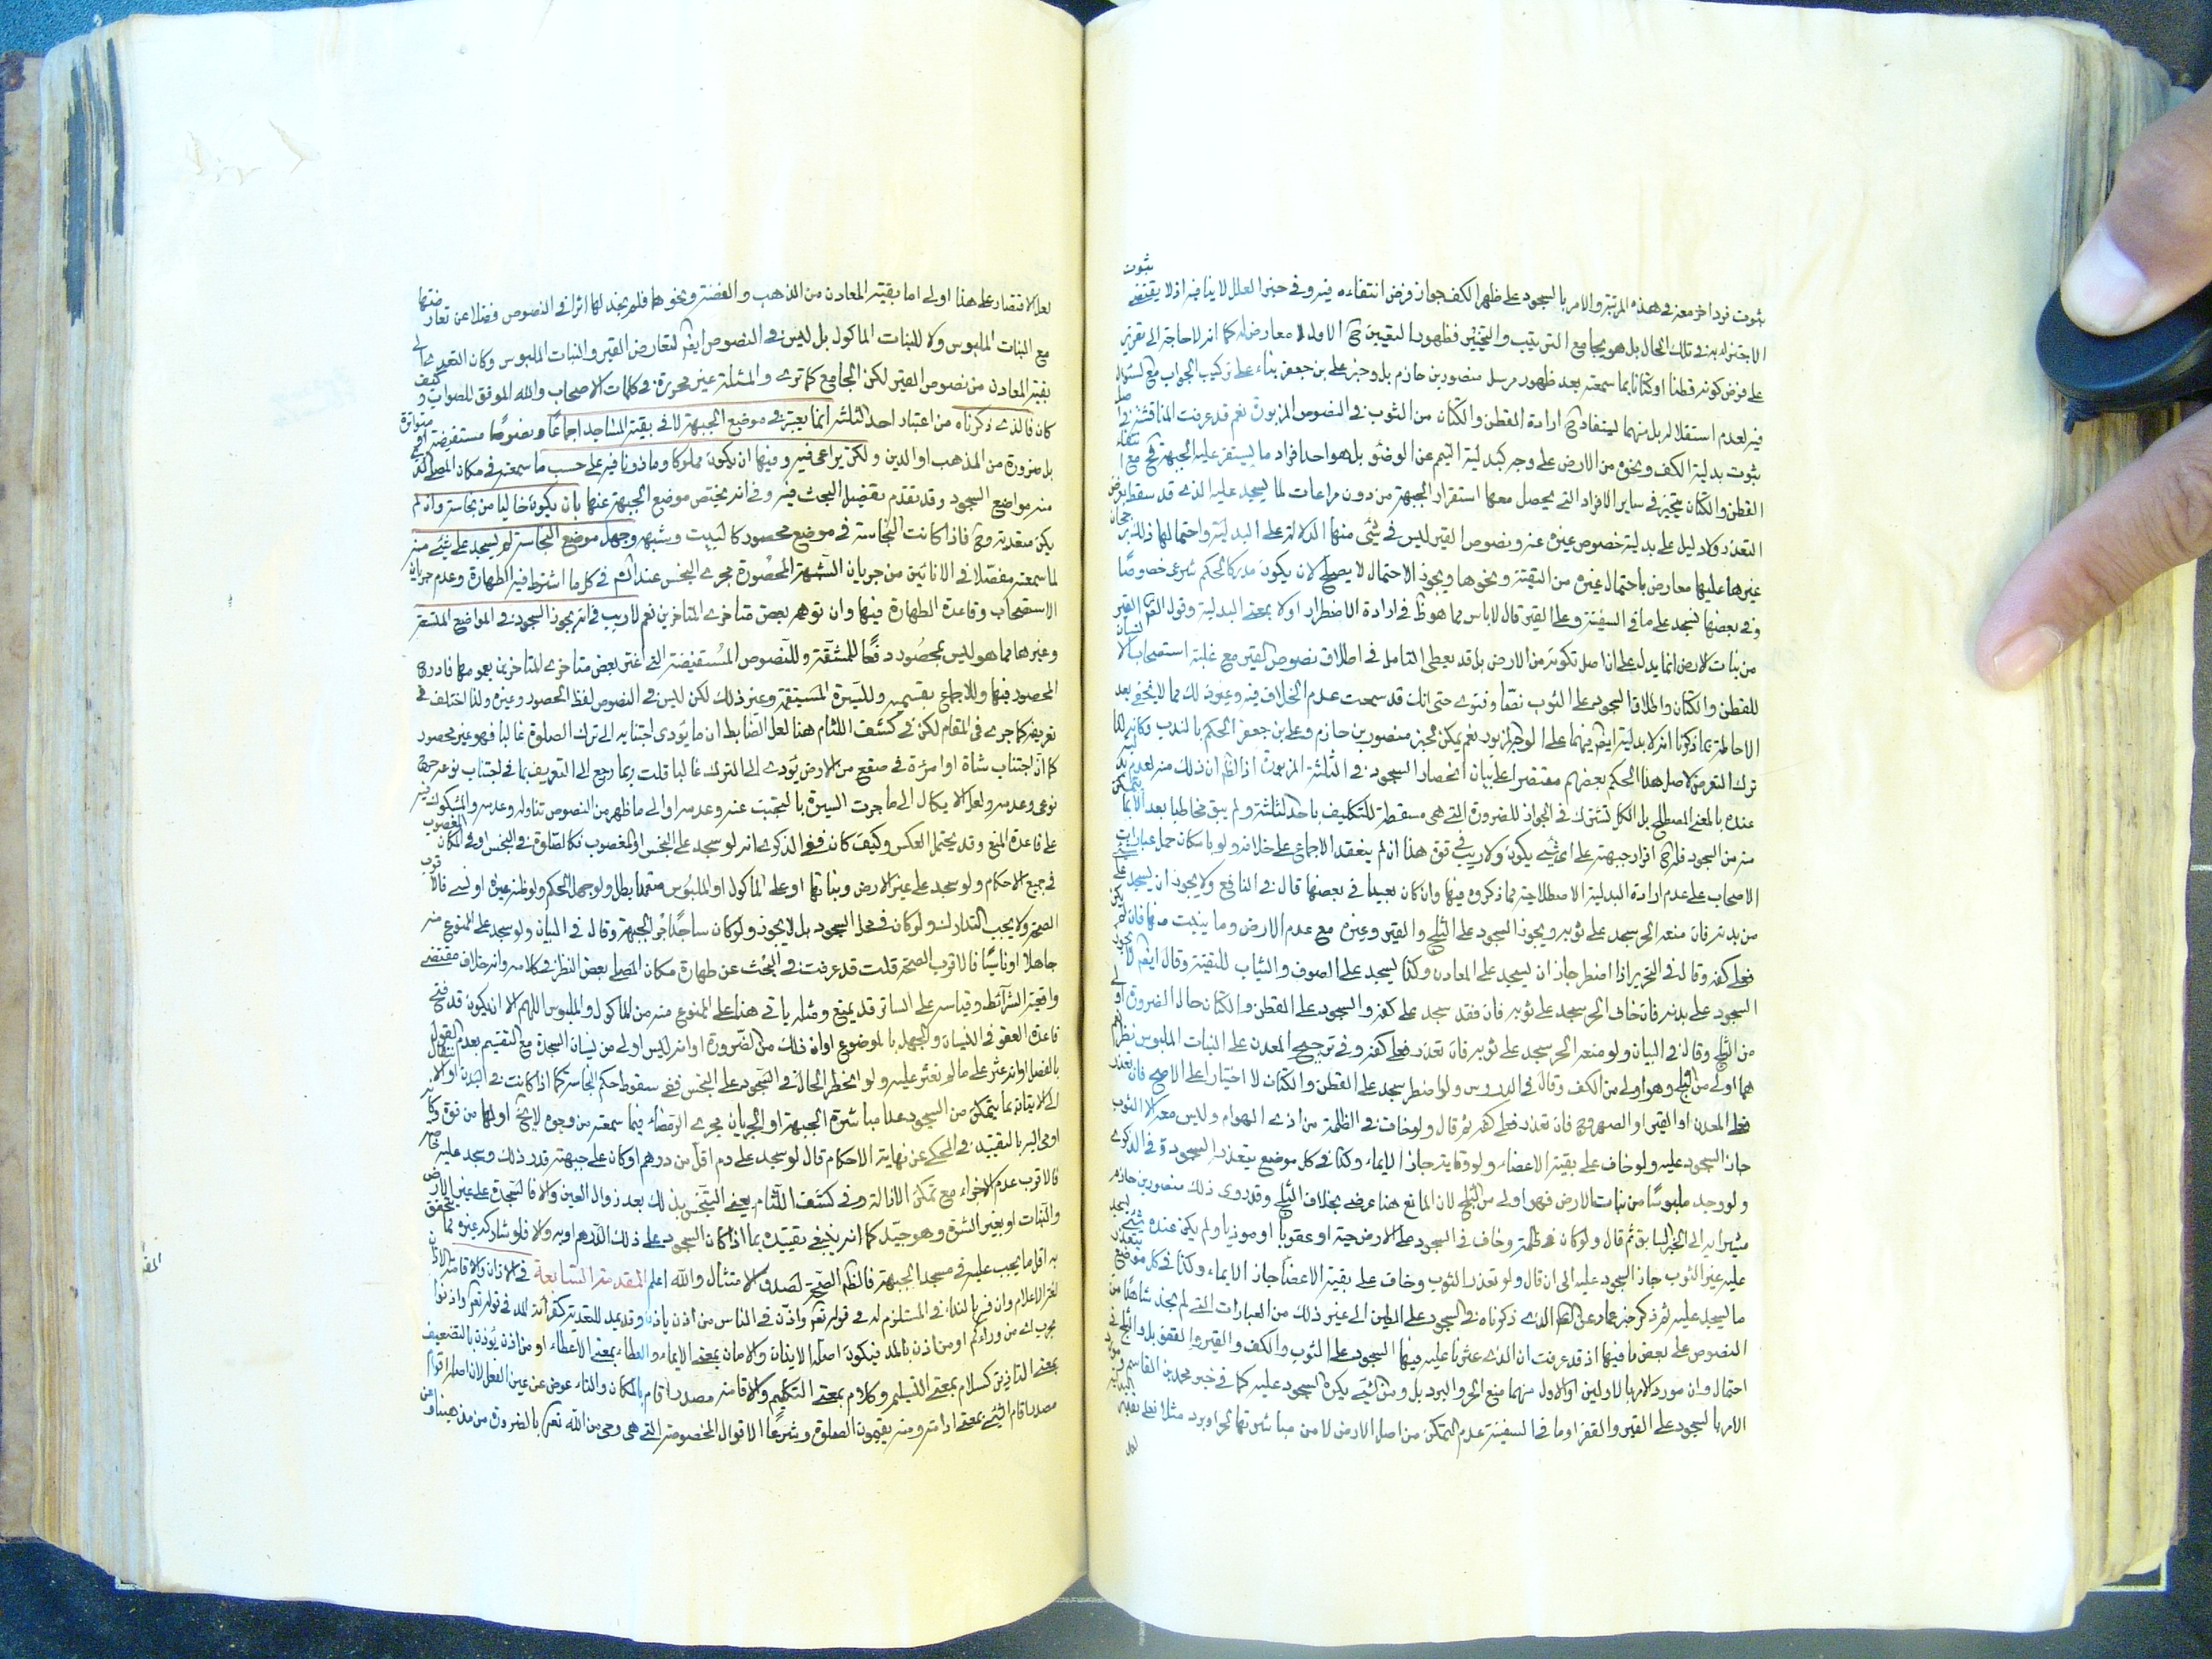 ثبوت فرد اخر معه في هذه المرتبة والامر بالسجود على ظهر الكف جواز فرض انتفاءه فيه وفي خبر العلل لا ينافيه اذ لا يقتضي ثبوت
الاجتزاء به في تلك الحال بل هو يجامع الترتيب والتخيير فظهور التعيين ح الاول لا معارض له كما انه لا حاجة الى تقرير
على فرض كونه قطنا او كتانا بما سمعته بعد ظهور مرسل منصور بن حازم بل وخبر علي بن جعفر بناء على تركيب الجواب مع السؤال
فيه لعدم استقلاله بل منهما يستفاد ح ارادة القطن والكتان من الثوب في النصوص المزبورة نعم قد عرفت المناقشة في
ثبوت بدلية الكف ونحوه من الارض على وجه كبدلية التيمم عن الوضوء بل هو احد افراد ما يستقر عليه الجبهة فح مع
القطن والكتان يتخير في ساير الافراد التي يحصل معها استقرار الجبهة من دون مراعات لما يسجد عليه الذي قد سقط
التعذر ولا دليل على بدلية خصوص غيره عنه ونصوص القير ليس في شئ منها الدلالة على البدلية واحتمالها ذلك
غيرها عليها معارض باحتمال غيره من التقية ونحوها ويجوز الاحتمال لا يصلح لان يكون مدركا لحكم شرعي خصوصًا
وفي بعضها تسجد على ما في السفينة وعلى القير قال لا باس مما هو ظ في ارادة الاضطرار اولا بمعنى البدلية وقوله القير
من نبات الارض انما يدل على ان اصل تكونه من الارض بل قد يعطي التامل في اطلاق نصوص القير مع غلبة استصحاب
للقطن والكتان واطلاق السجود على الثوب نصا وفتوى حتى انك قد سمعت عدم الخلاف فيه وغير ذلك مما لا يخفى بعد
الاحاطة بما ذكرنا انه لا بدلية ايض فيهما على الوجه المزبور نعم يمكن لخبر منصور بن حازم وعلي بن جعفر الحكم بالندب وكانه لذا
ترك التعرض لاصل هذا الحكم بعضهم مقتصرا على بيان انحصار السجود في الثلثة المزبورة اذ الظ ان ذلك منه لعدم
عنده بالمعنى المصطلح بل الكل تشترك في الجواز للضرورة التي هي مسقطة للتكليف باحد الثلثة ولم يبق مخاطبا بعد
منه من السجود فله ح اقرار جبهته على اي شئ يكون ولا ريب في قوة هذا ان لم ينعقد الاجماع على خلافه ولو بامكان حمل عبارات
الاصحاب على عدم ارادة البدلية الاصطلاحية مما ذكروه فيها وان كان بعيدا في بعضها قال في النافع ولا يجوز ان يسجد على
من بدنه فان منعه الحر سجد على ثوبه ويجوز السجود على الثلج والقير وغيره مع عدم الارض وما ينبت منها فان لم
فعلى كفه وقال في التحرير اذا اضطر جاز ان يسجد على المعادن وكذا يسجد على الصوف والثياب للتقية وقال ايض لا
السجود على بدنه فان خاف الحر سجد على ثوبه فان فقد سجد على كفه والسجود على القطن والكتان حال الضرورة او
من الثلج وقال في البيان ولو منعه الحر سجد على ثوبه فان تعذر فعلى كفه وفي ترجيح المعدن على النبات الملبوس نظر
هما اولى من الثلج وهو اولى من الكف وقال في الدروس ولو اضطر سجد على القطن والكتان لا اختيارا على الاصح فان تعذر
فعلى المعدن او القير او الصهروج فان تعذر فعلى كفه ثم قال ولو خاف في الظلمة من اذى الهوام وليس معه الا الثوب
جاز السجود عليه ولو خاف على بقية الاعضاء ولو وقاية جاز الايماء وكذا في كل موضع يتعذر السجود وفي الذكرى
ولو وجد ملبوسًا من نبات الارض فهو اولى من الثلج لان المانع هنا عرضي بخلاف الثلج وقد روى ذلك منصور بن حازم
مشيرا به الى الخبر السابق ثم قال ولو كان في ظلمة وخاف في السجود على الارض حية او عقربا او موذيا ولم يكن عنده شئ
عليه غير الثوب جاز السجود عليه الى ان قال ولو تعذر الثوب وخاف على بقية الاعضاء جاز الايماء وكذا في كل موضع
ما يسجد عليه ثم ذكر خبر عمار عن الصادق الذي ذكرناه في السجود على الطين الى غير ذلك من العبارات التي لم نجد شاهدًا من
النصوص على بعض ما فيها اذ قد عرفت ان الذي عثرنا عليه فيها السجود على الثوب والكف والقير والقفر بل والثلج
احتمال وان مورد الامر بالاولين او الاول منهما منع الحر والبرد بل ومن شئ يكره السجود عليه كما في خبر محمد بن القاسم
الامر بالسجود على القير والقفر او ما في السفينة عدم التمكن من اصل الارض لا من مباشرتها لحر او برد مثلا فعلى
لعل
لعل الاقتصار على هذا اولى اما بقية المعادن من الذهب والفضة ونحوهما فلم نجد لها اثرا في النصوص فضلا عن تعارضها
مع النبات الملبوس ولا للنبات الماكول بل ليس في النصوص ايض لتعارض القير والنبات الملبوس وكان التعدي الى
بقية المعادن من نصوص القير لكن الجامع كما ترى والمسئلة غير محررة في كلمات الاصحاب والله الموفق للصواب وكيف
كان فالذي ذكرناه من اعتبار احد الثلثة انما يعتبر في موضع الجبهة لا في بقية المساجد اجماعًا ونصوصًا مستفيضة او متواترة
بل ضرورة من المذهب او الدين ولكن يراعى فيه وفيها ان يكون مملوكا وماذونا فيه على حسب ما سمعته في مكان المصلي
منه مواضع السجود وقد تقدم تفصيل البحث فيه وفي انه يختص موضع الجبهة عنها بان يكون خاليا من نجاسة وان لم
يكن متعدية وح فاذا كانت النجاسة في موضع محصور كالبيت وشبهه وجهل موضع النجاسة لم يسجد على شئ منه
لما سمعته مفصلا في الانائين من جريان الشبهة المحصورة مجرى النجس عندالكم في كل ما اشترط فيه الطهارة وعدم جريان
الاستصحاب وقاعدة الطهارة فيها وان توهم بعض متاخري المتاخرين نعم لا ريب في انه يجوز السجود في المواضع المتسعة
وغيرها مما هو ليس بمحصور دفعًا للمشقة وللنصوص المستفيضة التي اغتر بعض متاخري المتاخرين بعمومها فادرج
المحصور فيها وللاجماع بقسميه وللسيرة المستقيمة وغير ذلك لكن ليس في النصوص لفظ المحصور وغيره ولذا اختلف في
تعريفه كما جرى في المقام لكن في كشف اللثام هنا لعل الضابط ان ما يؤدى اجتنابه الى ترك الصلوة غالبا فهو غير محصور
كما ان اجتناب شاة او امرءة في صقع من الارض يؤدي الى الترك غالبا قلت ربما رجع الى التعريف بما في اجتناب نوعه حرج
نوعي وعدمه ولعل الايكال الى ما جرت السيرة بالتجنب عنه وعدمه او الى ما ظهر من النصوص تناوله وعدمه والمشكوك فيه
على قاعدة المنع وقد يحتمل العكس وكيف كان ففي الذكرى انه لو سجد على النجس او المغصوب فكالصلوة في النجس او في المكان المغصوب
في جميع الاحكام ولو سجد على غير الارض ونباتها او على الماكول او الملبوس متعمدا بطل ولو جهل الحكم ولو ظنه غيره او نسي فالاقرب
الصحة ولا يجب التدارك ولو كان في محل السجود بل لا يجوز ولو كان ساجدًا جر الجبهة وقال في البيان ولو سجد على الممنوع منه
جاهلا او ناسيًا فالاقرب الصحة قلت قد عرفت في البحث عن طهارة مكان المصلي بعض النظر في كلامه وانه خلاف مقتضى
واقعية الشرائط وقياسه على الساتر قد يمنع ومثله ياتي هنا على الممنوع منه من الماكول والملبوس اللهم الا ان يكون قد فتح
قاعدة العفو في النسيان والجهل بالموضوع او ان ذلك من الضرورة او انه ليس اولى من نسيان السجدة مع التقسيم بعدم القول
بالفصل او انه عثر على ما لم نعثر عليه ولو انحظر الحال في السجود على النجس ففي سقوط حكم النجاسة كما اذا كانت في البدن او الانتقال
الى الايتان بما يتمكن من السجود عدا مباشرة الجبهة او الجريان مجرى الرمضاء فيما سمعته من وجوه لا يخ اولها من قوة
اومى اليه بالتقييد في المحكي عن نهاية الاحكام قال لو سجد على دم اقل من درهم او كان على جبهته قدر ذلك وسجد عليه
فالاقرب عدم الاجزاء مع تمكن الازالة وفي كشف اللثام يعني المتنجس بذلك بعد زوال العين والا فالسجدة على غير الارض
والنبات او بغير البشرة وهو جيد كما انه ينبغي تقييده بما اذا كان السجود على ذلك الدرهم او به ولا فلو شاركه غيره مما يتحقق
به اقل ما يجب عليه في مسجد الجبهة فالظ الصحة لصدق الامتثال والله اعلم المقدمة السابعة في الاذان والاقامة الاذان
لغة الاعلام وان فسر بالنداء المستلزم له في قوله تعالى واذن في الناس من اذن ياذن وقد يمد للتعدية كقراءة المد في قوله تعالى واذنوا
بحرب اي من وراءكم او من اذن بالمد فيكون اصله الايذان والامان بمعنى الايماء والعطاء بمعنى الاعطاء او من اذن يؤذن بالتضعيف
بمعنى التاذين كسلام بمعنى التسليم وكلام بمعنى التكليم والاقامة مصدر اقام بالمكان والتاء عوض عن عين الفعل لان اصله اقوام
مصدر اقام الشئ بمعنى ادامه ومنه يقيمون الصلوة وشرعًا الاقوال المخصوصة التي هي وحي من الله تعالى بالضرورة من مذهبنا